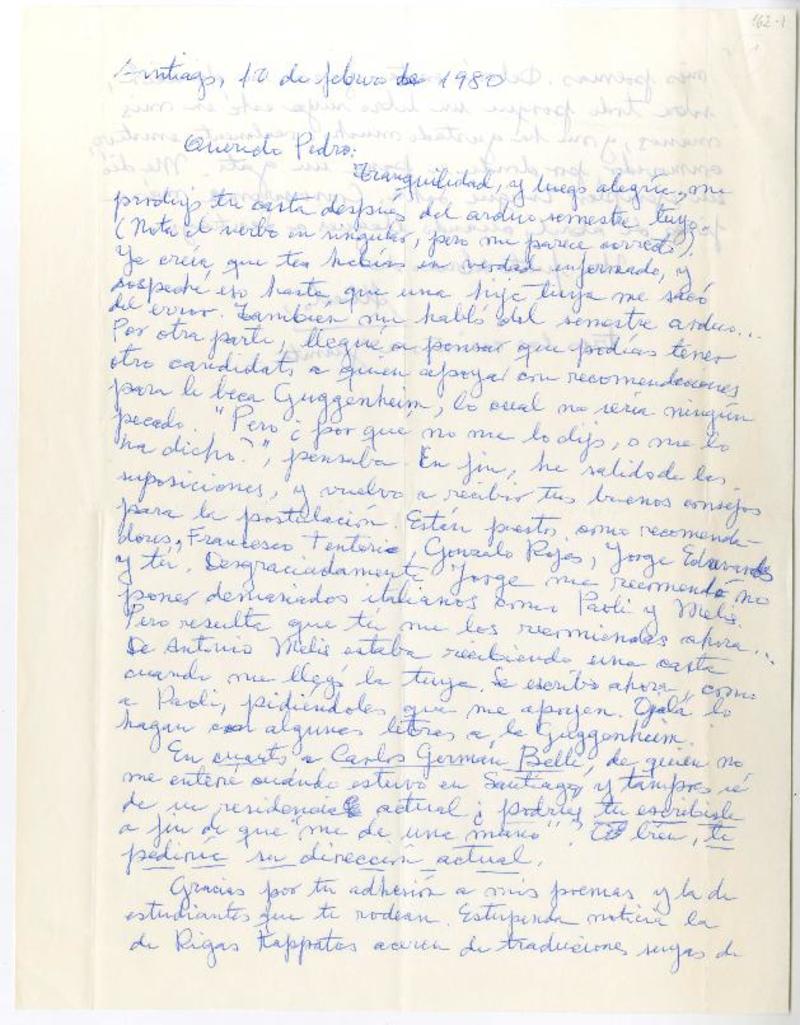 162-1
Santiago, 10 de febrero de 1980
Querido Pedro:
Tranquilidad, y luego alegría, me
produjo tu carta después del arduo semestre tuyo.
(Nota el verbo en singular, pero me parece correcto).
Yo creía que te habías en verdad enfermado, y
sospeché eso hasta que una hija tuya me sacó
del error. También me habló del semestre arduo...
Por otra parte, llegué a pensar que podías tener
otro candidato a quien apoyar con recomendaciones
para la beca Guggenheim, lo cual no sería ningún
pecado. "Pero ¿por qué no me lo dijo, o me lo
ha dicho?", pensaba. En fin, he salido de las
suposiciones, y vuelvo a recibir tus buenos consejos
para la postulación. Están puestos como recomenda-
dores, Francesco Tentori, Gonzalo Rojas, Jorge Edwards
y tú. Desgraciadamente Jorge me recomendó no
poner demasiados italianos como Paoli y Melis.
Pero resulta que tú me los recomiendas ahora...
De Antonio Melis estaba recibiendo una carta
cuando me llegó la tuya. Le escribo ahora, como
a Paoli, pidiéndoles que me apoyen. Ojalá lo
hagan con algunas letras a la Guggenheim.
En cuanto a Carlos Germán Belli, de quien no
me enteré cuándo estuvo en Santiago y tampoco sé
de su residencia actual ¿podrías tú escribirle
a fin de que "me dé una mano"? O bien, te
pediría su dirección actual.
Gracias por tu adhesión a mis poemas y la de
estudiantes que te rodean. Estupenda noticia la
de Rigas Kappatos acerca de traducciones suyas de